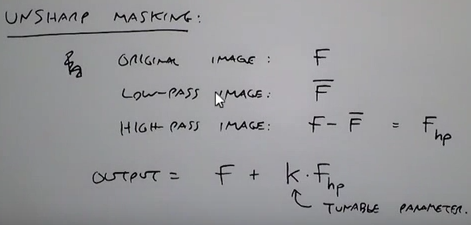 UNSHARP MASKING:
ORIGINAL IMAGE: F
LOW-PASS IMAGE: F̅
HIGH-PASS IMAGE: F - F̅ = F_hp
OUTPUT = F + k · F_hp
TUNABLE PARAMETER.